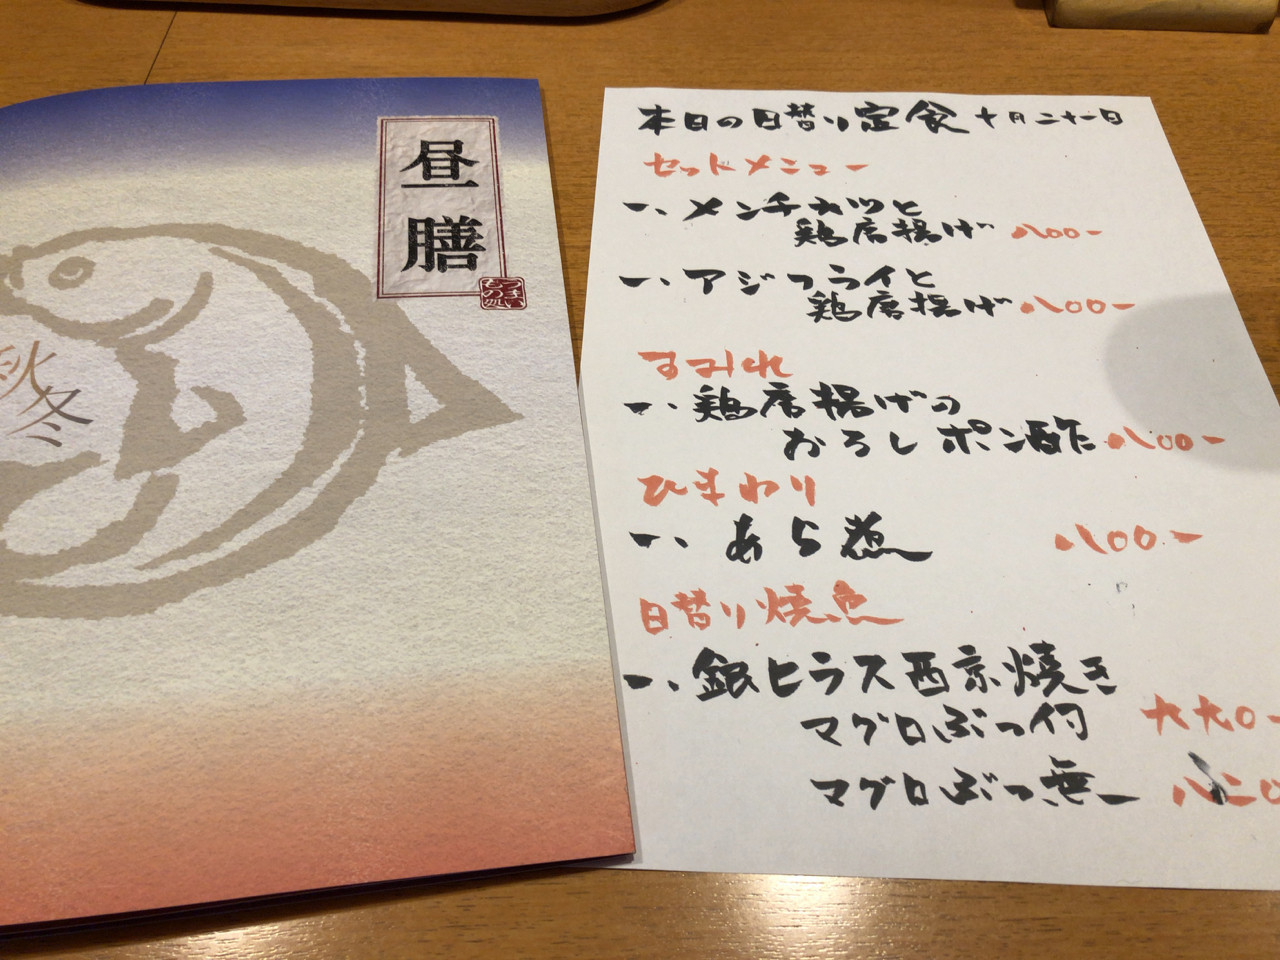 昼膳
うまい
もの処
秋冬
本日の日替り定食 十月二十一日
セットメニュー
一、メンチカツと
鶏唐揚げ 八〇〇-
一、アジフライと
鶏唐揚げ 八〇〇-
すみれ
一、鶏唐揚げの
おろしポン酢 八〇〇-
ひまわり
一、あら煮 八〇〇-
日替り焼魚
一、銀ヒラス西京焼き
マグロぶつ付 九九〇-
マグロぶつ無 八二〇